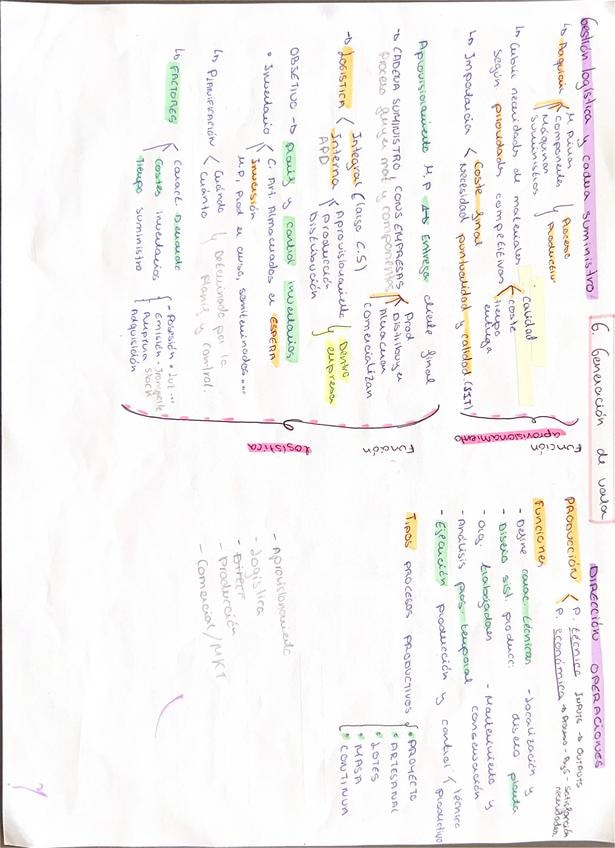 6. Generación de valor
Gestión logística y cadena suministro
↳ Adquirir
M. Primas
Componentes
Máquinas
Suministros
Proceso
Productivo
↳ Cubrir necesidades de materiales
según prioridades competitivas
Calidad
Coste
Tiempo
entrega
↳ Importancia
Coste final
Necesidad puntualidad y calidad (JIT)
Función
aprovisionamiento
Aprovisionamiento M.P → Entrega cliente final
→ CADENA SUMINISTRO, CONJ EMPRESAS
Proceso fluye mat y componentes
Prod
Distribuyen
Almacenan
Comercializan
→ LOGÍSTICA
Integral (largo C.S)
Interna
APD
Aprovisionamiento
Producción
Distribución
Dentro
empresa
OBJETIVO → Planif y control inventarios
• Inventario
C. Art. Almacenados en ESPERA
Inversión
M.P, Prod en curso, semiterminados...
↳ PLANIFICACIÓN
Cuándo
Cuánto
Determinado por la
planif y control.
↳ FACTORES
Caract Demanda
Costes inventarios
Tiempo suministro
- Posesión
- Emisión
- Ruptura stock
Adquisición
Función
Logística
DIRECCIÓN OPERACIONES
PRODUCCIÓN
P. técnica INPUTS → OUTPUTS
P. económica → Proceso - ByS - satisfacción
necesidades
Funciones
- Define carac técnicas
- Diseño sist. producc.
- Org trabajadores
- Análisis pros. temporal
- Localización y
diseño planta
- Mantenimiento y
conservación
- Ejecución producción y control
técnico
productivo
TIPOS PROCESOS PRODUCTIVOS
• PROYECTO
• ARTESANAL
• LOTES
• MASA
• CONTINUA
- Aprovisionamiento
- Logística
- Producción
- Comercial/MKT